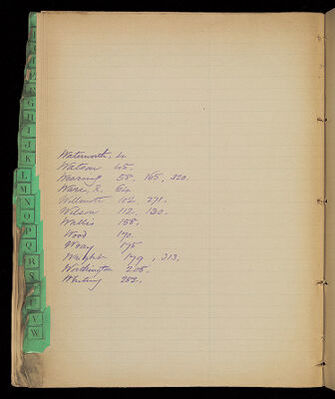 G
H
I
J
K
L
M
N
O
P
Q
R
S
V
W
Waterworth, 4.
Watson 45.
Waring 58, 165, 320.
Ware, R. 62.
Willmott 102, 271.
Wilson 112, 130.
Wallis 158.
Wood 170.
Wray 175.
Wright 179, 313.
Worthington 205.
Whiting 252.